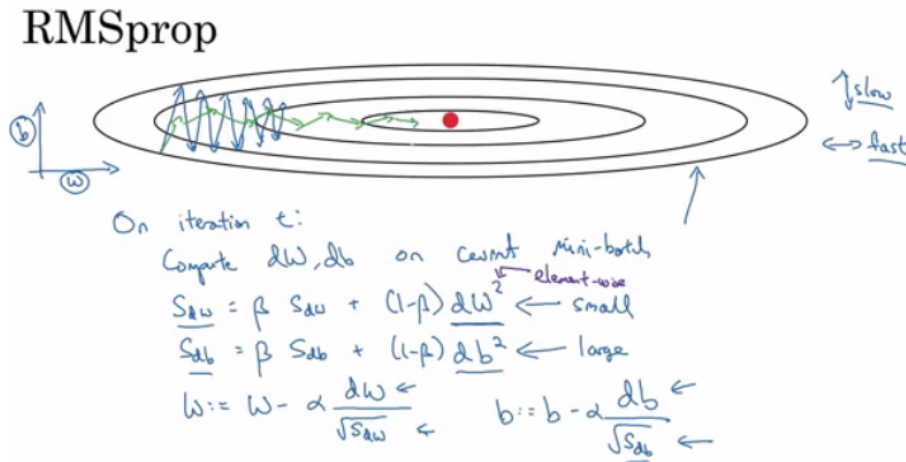 RMSprop
b
w
slow
fast
On iteration t:
Compute dW, db on current mini-batch
element-wise
Sdw = β Sdw + (1-β) dW² ← small
Sdb = β Sdb + (1-β) db² ← large
W := W - α dW / √Sdw ← b := b - α db / √Sdb ←